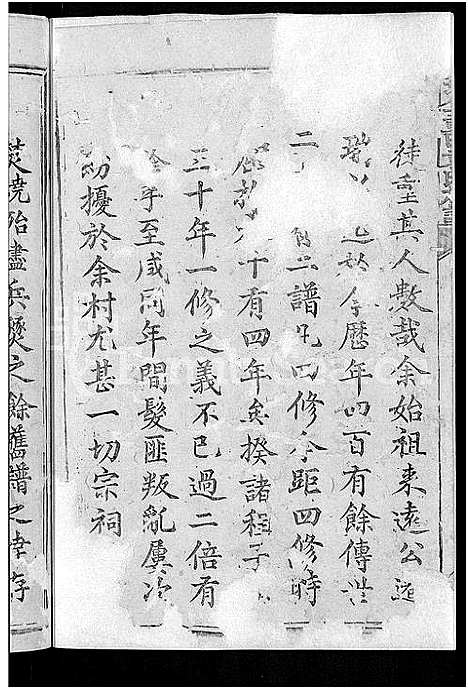 徒重其人數哉余始祖来遠公
於今歷年四百有餘傳
二 譜凡四修今距四修時
十有四年矣揆諸祖子
三十年一修之義不已過二倍有
年至咸同年間髮匪叛亂屢次
紛擾於余村尤甚一切宗祠
焚燒殆盡兵燹之餘舊譜之幸存